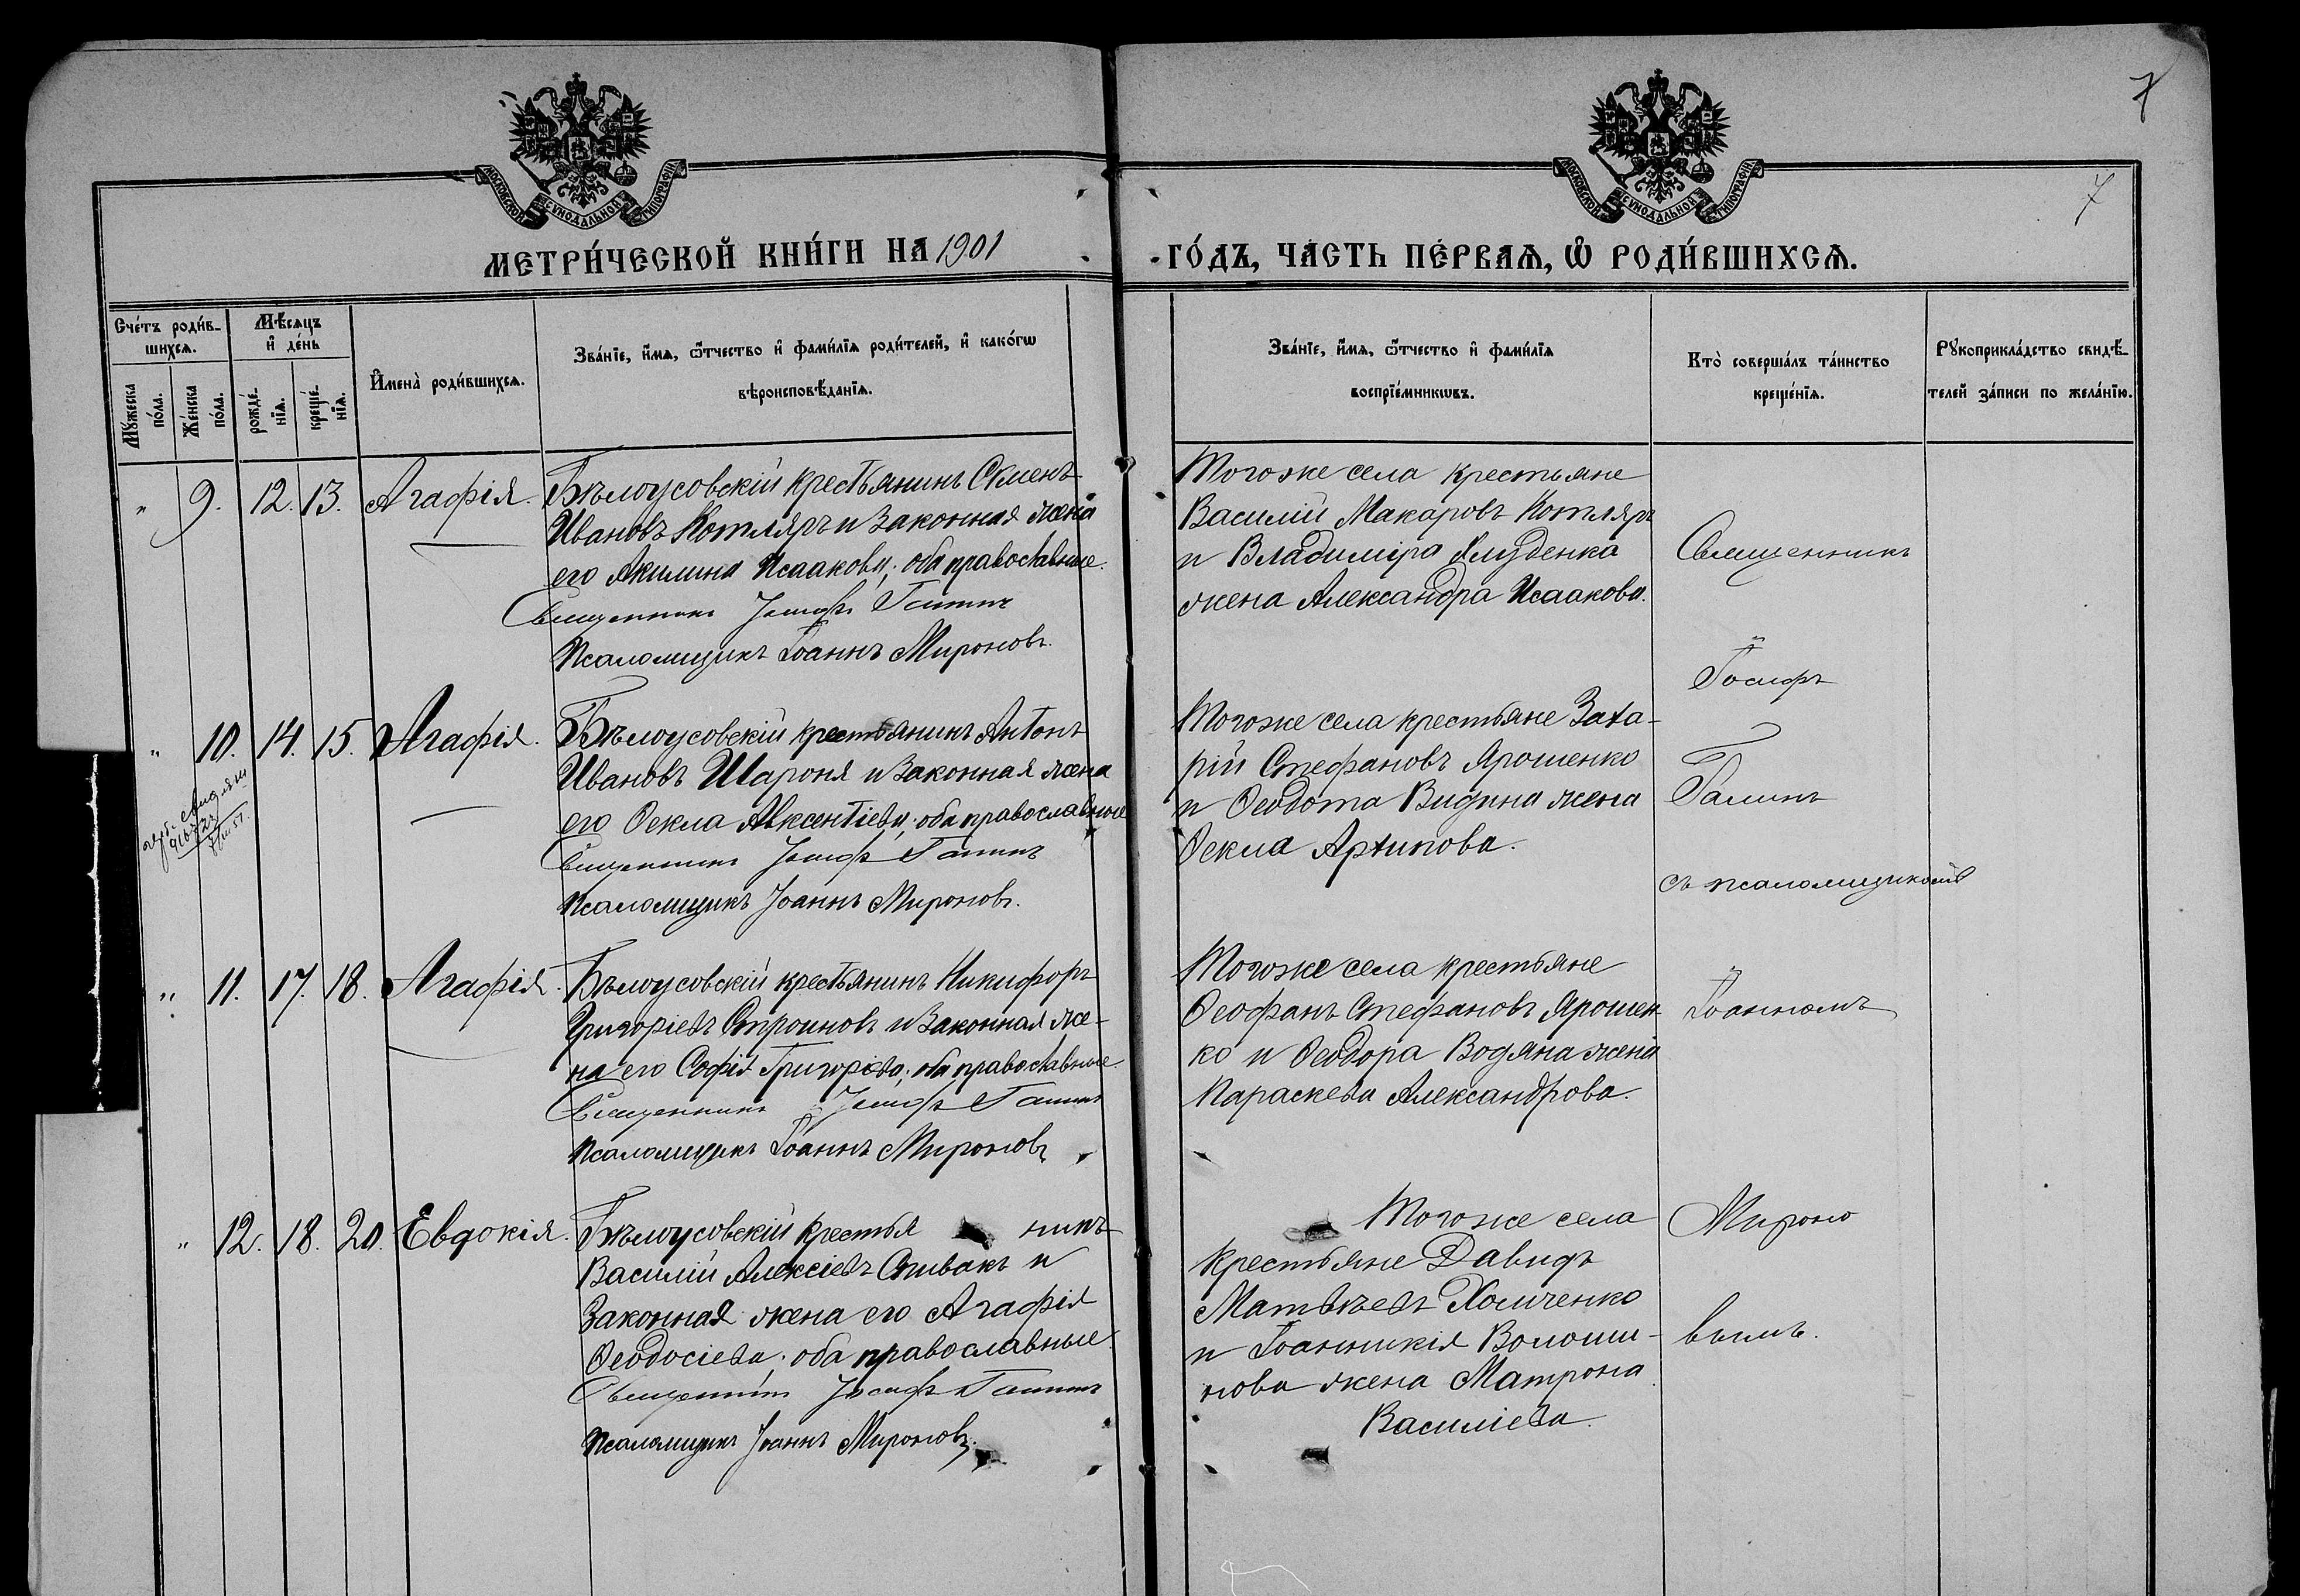 7
МОСКОВСКОЙ СУНОДАЛЬНОЙ ТИПОГРАФІИ
МОСКОВСКОЙ СУНОДАЛЬНОЙ ТИПОГРАФІИ
7
МЕТРИ́ЧЕСКОЙ КНИ́ГИ НА 1901
ГО́ДЪ, ЧА́СТЬ ПЕ́РВАѦ, Ѽ РОДИ́ВШИХСѦ.
Сче́тъ роди́в-
шихсѧ.
Мꙋ́жеска
по́ла.
Же́нска
по́ла.
Мѣ́сѧцъ
и҆ де́нь
рожде́-
нїѧ.
креще́-
нїѧ.
И҆мена̀ роди́вшихсѧ.
Зва́нїе, и҆́мѧ, ѻ҆́тчество и҆ фами́лїѧ роди́телей, и҆ како́гѡ
вѣроисповѣ́данїѧ.
Зва́нїе, и҆́мѧ, ѻ҆́тчество и҆ фами́лїѧ
воспрїе́мникѡвъ.
Кто̀ соверша́лъ та́инство
креще́нїѧ.
Рꙋкоприкла́дство свидѣ́-
телей за́писи по жела́нїю.
" 9. 12. 13. Агафія.
Бѣлоусовскій крестьянинъ Семенъ
Ивановъ Котляръ и законная жена
его Акилина Исаакова; оба православные.
Священникъ Іосифъ Галинъ
Псаломщикъ Іоаннъ Мироновъ.
Тогоже села крестьяне
Василій Макаровъ Котляръ
и Владиміра
жена Александра Исаакова.
" 10. 14. 15. Агафія.
Бѣлоусовскій крестьянинъ Антонъ
Ивановъ Шароня и законная жена
его Ѳекла Авксентіева; оба православные
Священникъ Іосифъ Галинъ
Псаломщикъ Іоаннъ Мироновъ.
Тогоже села крестьяне Заха-
рій Стефановъ Ярошенко
и Ѳеодота жена
Ѳекла Архипова.
" 11. 17. 18. Агафія.
Бѣлоусовскій крестьянинъ Никифоръ
Григоріевъ Строиновъ и законная же-
на его Софія Григоріева; оба православные.
Священникъ Іосифъ Галинъ
Псаломщикъ Іоаннъ Мироновъ
Тогоже села крестьяне
Ѳеофанъ Стефановъ Ярошен-
ко и Ѳеодора Водяна жена
Параскева Александрова.
" 12. 18. 20. Евдокія.
Бѣлоусовскій крестья нинъ
Василій Алексіевъ Спивакъ и
законная жена его Агафія
Ѳеодосіева; оба православные
Священникъ Іосифъ Галинъ
Псаломщикъ Іоаннъ Мироновъ.
Тогоже села
крестьяне Давидъ
Матѳѣевъ Хомченко
и Іоанникія Волоши-
нова жена Матрона
Василіева.
Священникъ
Іосифъ
Галинъ
съ псаломщикомъ
Іоанномъ
Мироно
вымъ.